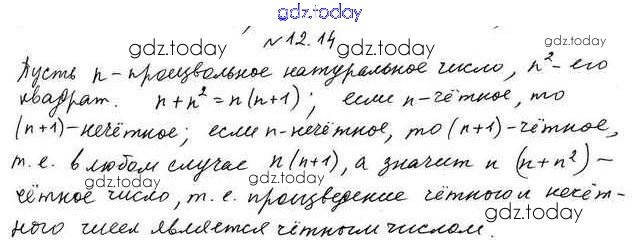 gdz.today
№12.14
gdz.today gdz.today
Пусть n - произвольное натуральное число, n² - его
квадрат. n + n² = n(n+1); если n - чётное, то
gdz.today gdz.today
(n+1) - нечётное; если n - нечётное, то (n+1) - чётное,
т.е. в любом случае n(n+1), а значит и (n+n²) -
gdz.today gdz.today
чётное число, т.е. произведение чётного и нечёт-
ного чисел является чётным числом.
gdz.today